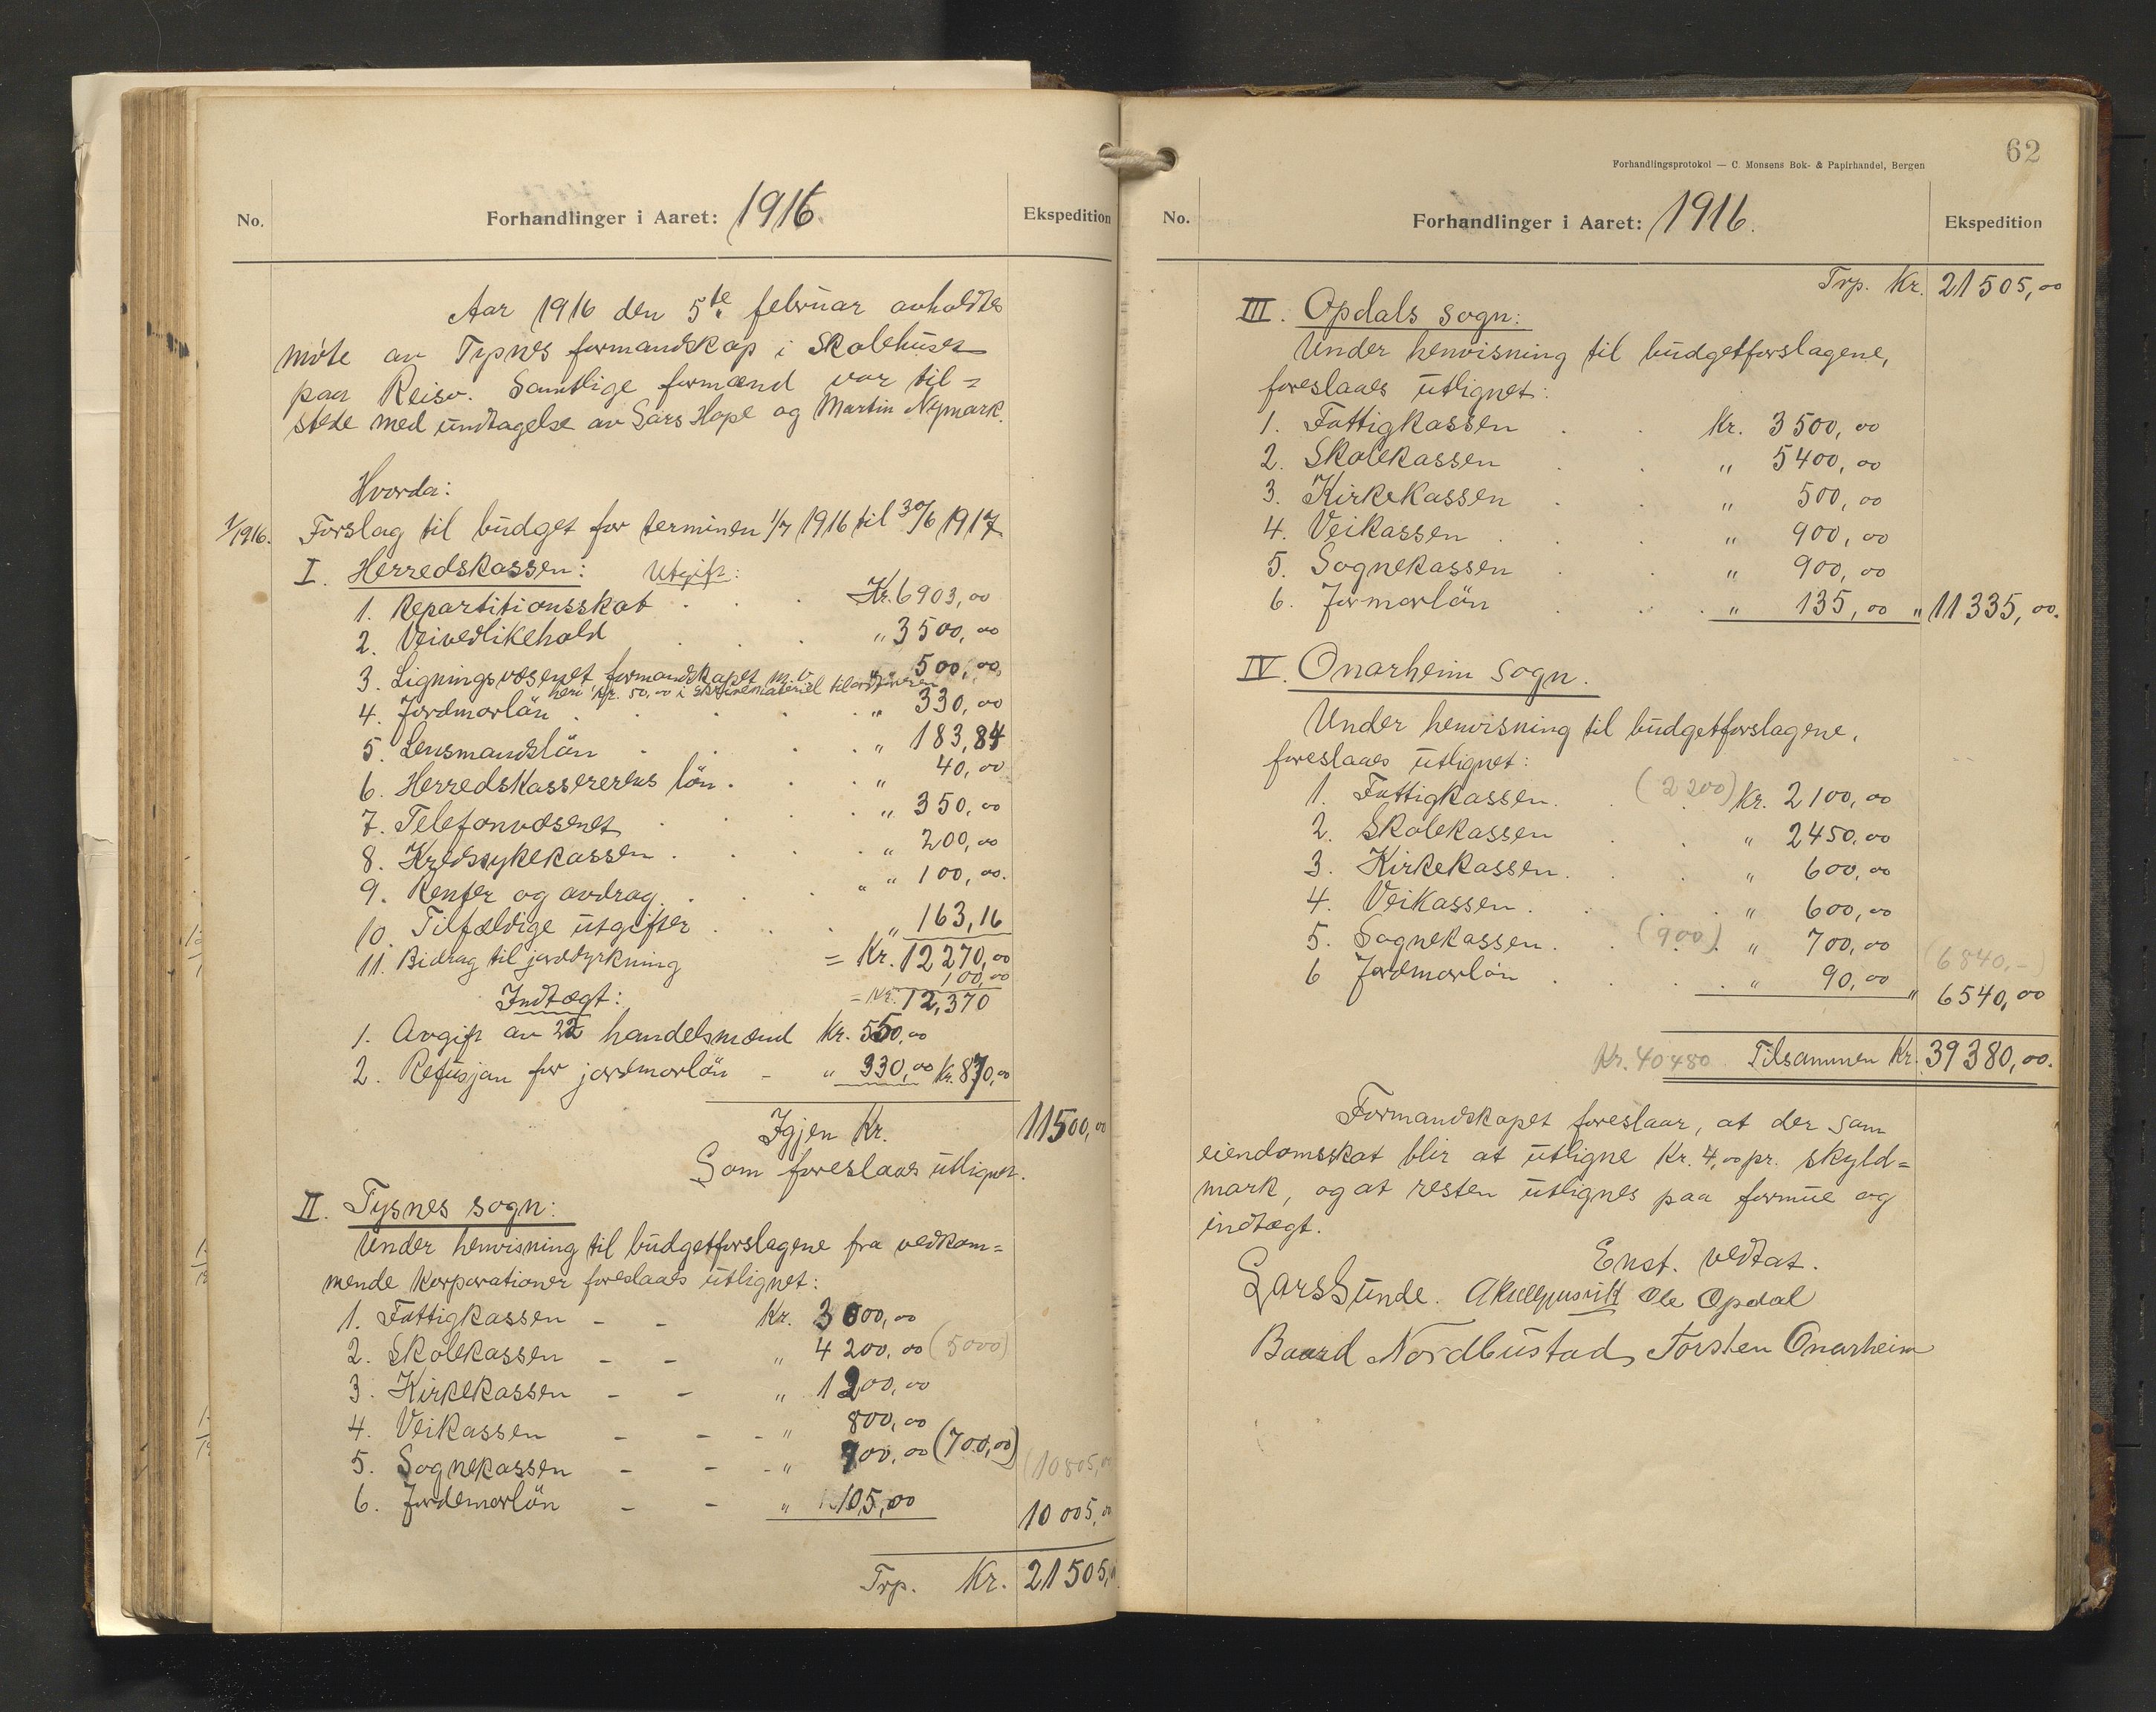 No.
Forhandlinger i Aaret: 1916.
Ekspedition
Aar 1916 den 5te februar avholdtes
möte av Tysnes formandskap i Skolehuset
paa Reisv. Samtlige formænd var til=
stede med undtagelse av Lars Hope og Martin Nymark.
Hvorda:
1/1916. Forslag til budget for terminen 1/7 1916 til 30/6 1917
I. Herredskassen: Utgift:
1. Repartitionsskat . . . Kr. 6903,00
2. Veivedlikehold . . „ 3500,00
3. Ligningsvæsenet formandskapet m.v. „ 500,00
heri kr. 50,00 i skrivemateriel til ordföreren
4. Jordmorlön . . . . „ 330,00
5. Lensmandslön . . . . „ 183,84
6. Herredskassererens lön . . . „ 40,00
7. Telefonvæsenet . . . . „ 350,00
8. Kredssykekassen . . . . „ 200,00
9. Renter og avdrag . . . „ „ 100,00.
10. Tilfældige utgifter . . . „ 163,16
= Kr. 12270,00
11. Bidrag til jorddyrkning 100,00
= Kr. 12,370
Indtægt:
1. Avgift av 22 handelsmænd Kr. 550,00
2. Refusjon for jordmorlön - „ 330,00 Kr. 870,00
Igjen Kr. 11500,00
Som foreslaaes utlignet.
II. Tysnes sogn:
Under henvisning til budgetforslagene fra vedkom=
mende korporationer foreslaaes utlignet:
1. Fattigkassen - - Kr. 3000,00
2. Skolekassen - - „ 4200,00 (5000)
3. Kirkekassen - - „ 1200,00
4. Veikassen - - - „ 800,00
5. Sognekassen - - - „ 700,00 (700,00)
(10805,00
6. Jordemorlön - - „ 105,00
10005,00
Trp. Kr. 21505,00
Forhandlingsprotokol — C. Monsens Bok- & Papirhandel, Bergen
62
No.
Forhandlinger i Aaret: 1916.
Ekspedition
Trp. Kr. 21505,00
III. Opdals sogn:
Under henvisning til budgetforslagene,
foreslaaes utlignet:
1. Fattigkassen . . Kr. 3500,00
2. Skolekassen . . „ 5400,00
3. Kirkekassen . . „ 500,00
4. Veikassen . . . „ 900,00
5. Sognekassen . . „ 900,00
6. Jormorlön . . . „ 135,00 „ 11335,00.
IV. Onarheim sogn.
Under henvisning til budgetforslagene,
foreslaaes utlignet:
1. Fattigkassen. . (2200) Kr. 2100,00
2. Skolekassen . . „ 2450,00
3. Kirkekassen. . „ 600,00
4. Veikassen. . . . „ 600,00
5. Sognekassen. . (900). „ 700,00
(6840,-)
6 Jordmorlön . . . „ 90,00
„ 6540,00
Kr. 40480 Tilsammen Kr. 39380,00.
Formandskapet foreslaar, at der som
eiendomsskat blir at utligne Kr. 4,00 pr. skyld=
mark, og at resten utlignes paa formue og
indtægt.
Enst. vedtat.
Lars Sunde. Ole Opdal
Baard Nordbustad, Torsten Onarheim